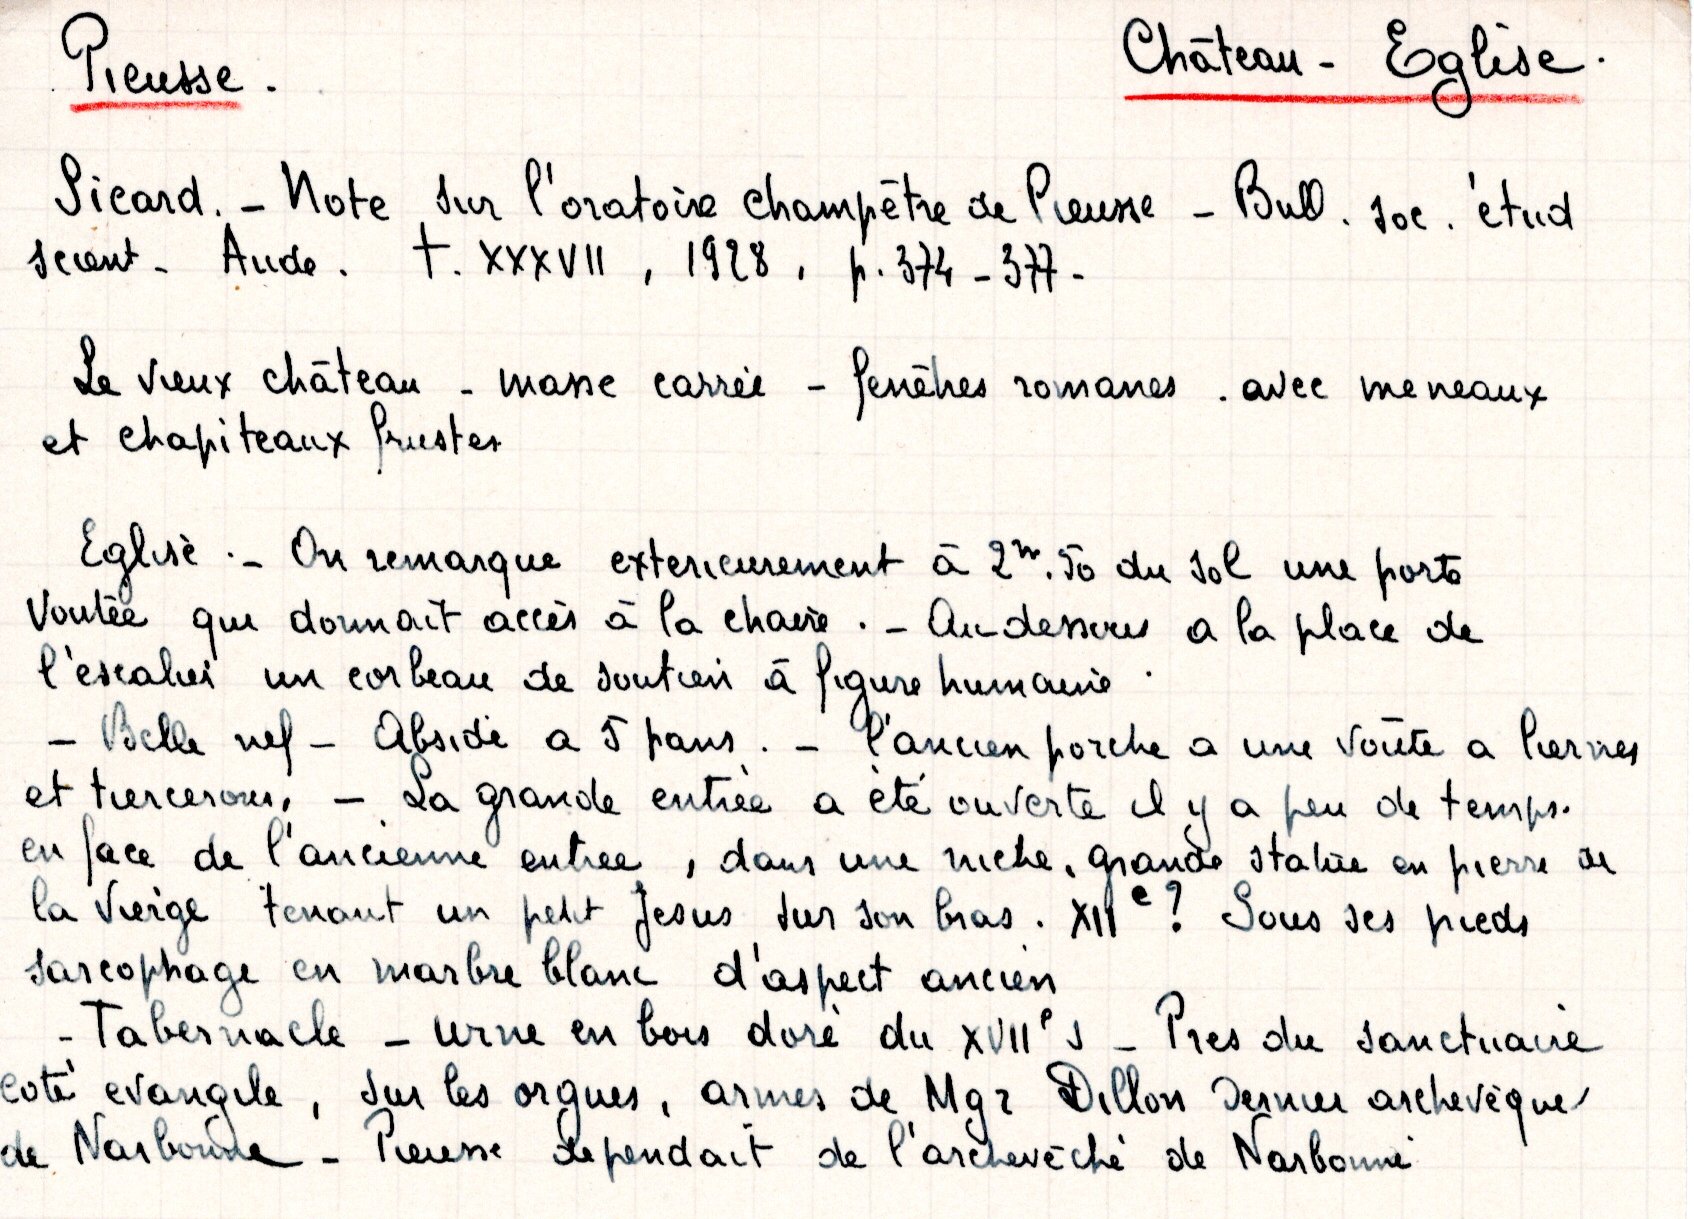 Pieusse.
Château - Eglise.
Sicard. - Note sur l'oratoire champêtre de Pieusse - Bull. soc. étud
scient - Aude. t. XXXVII, 1928, p. 374-377-
Le vieux château - masse carrée - fenêtres romanes. avec meneaux
et chapiteaux frustes
Eglise .- On remarque exterieurement à 2m.50 du sol une porte
voutée qui donnait accès à la chaire. - Au-dessous a la place de
l'escalier un corbeau de soutien à figure humaine.
- Belle nef - Abside a 5 pans. - l'ancien porche a une voûte a liernes
et tiercerons, - La grande entrée a été ouverte il y a peu de temps.
en face de l'ancienne entree, dans une niche, grande statue en pierre de
la Vierge tenant un petit Jesus sur son bras. XIIe? Sous ses pieds
sarcophage en marbre blanc d'aspect ancien
- Tabernacle - urne en bois doré du XVIIe s - Pres du sanctuaire
coté evangile, sur les orgues, armes de Mgr Dillon dernier archevêque
de Narbonne - Pieusse dependait de l'archevêché de Narbonne